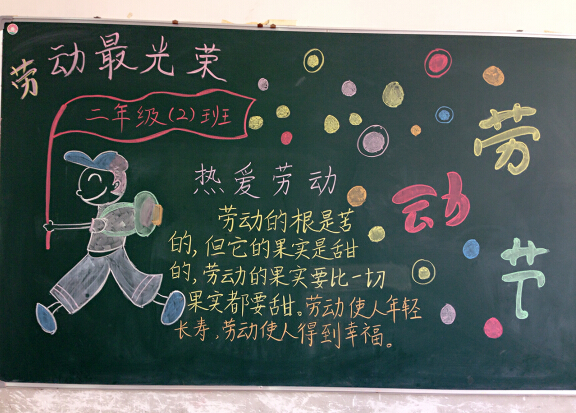 劳动最光荣
二年级(2)班
热爱劳动
劳动的根是苦
的,但它的果实是甜
的,劳动的果实要比一切
果实都要甜。劳动使人年轻
长寿,劳动使人得到幸福。
劳
动
节